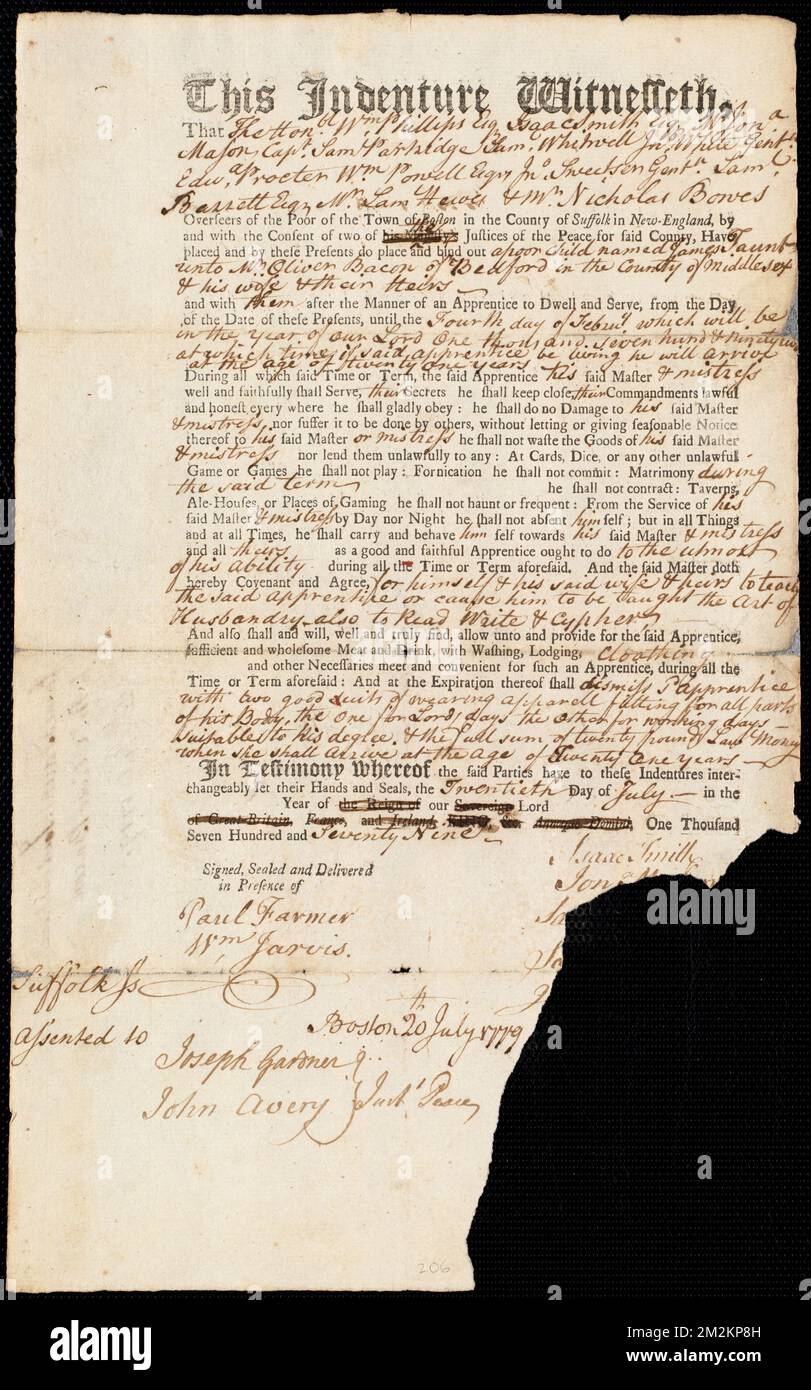 This Indenture Witnesseth,
That The Honble Wm Phillips Esq Isaac Smith Esq Mr Jona
Mason Capt. Saml Partridge Saml Whitwell Jno White Gentn
Edwd Procter Wm Powell Esqr Jno Sweetser Gentn Saml
Barrett Esqr Mr Saml Hewes & Mr Nicholas Bowes
Overseers of the Poor of the Town of Boston in the County of Suffolk in New-England, by
and with the Consent of two of his Majesty's the Justices of the Peace for said County, Have
placed and by these Presents do place and bind out a poor child named James Taunt
unto Mr. Oliver Bacon of Bedford in the County of Middlesex
& his wife & their Heirs
and with them after the Manner of an Apprentice to Dwell and Serve, from the Day
of the Date of these Presents, until the Fourth day of Febuy. which will be
in the year of our Lord One thousand seven hund & ninety
at which time if said apprentice be living he will arrive
at the age of twenty one years
During all which said Time or Term, the said Apprentice his said Master & mistress
well and faithfully shall Serve, their Secrets he shall keep close, their Commandments lawful
and honest every where he shall gladly obey: he shall do no Damage to his said Master
& mistress, nor suffer it to be done by others, without letting or giving seasonable Notice
thereof to his said Master or mistress he shall not waste the Goods of his said Master
& mistress nor lend them unlawfully to any: At Cards, Dice, or any other unlawful
Game or Games he shall not play: Fornication he shall not commit: Matrimony during
the said term he shall not contract: Taverns,
Ale-Houses, or Places of Gaming he shall not haunt or frequent: From the Service of his
said Master & mistress by Day nor Night he shall not absent himself; but in all Things
and at all Times, he shall carry and behave him self towards his said Master & mistress
and all theirs as a good and faithful Apprentice ought to do to the utmost
of his ability during all the Time or Term aforesaid. And the said Master doth
hereby Covenant and Agree, for himself & his said wife & heirs to teach
the said apprentice or cause him to be taught the Art of
Husbandry also to Read Write & Cypher
And also shall and will, well and truly find, allow unto and provide for the said Apprentice,
sufficient and wholesome Meat and Drink, with Washing, Lodging, cloathing
and other Necessaries meet and convenient for such an Apprentice, during all the
Time or Term aforesaid: And at the Expiration thereof shall dismiss sd apprentice
with two good suits of wearing apparell fitting for all parts
of his Body, the one for Lords days the other for working days
suitable to his degree. & the full sum of twenty pounds Law Money
when she shall arrive at the age of Twenty One years
In Testimony whereof the said Parties have to these Indentures inter-
changeably set their Hands and Seals, the Twentieth Day of July in the
Year of the Reign of our Sovereign Lord
of Great-Britain, France, and Ireland, KING, &c. Annoque Domini, One Thousand
Seven Hundred and Seventy Nine
Isaac Smith
Signed, Sealed and Delivered
in Presence of
Paul Farmer
Wm Jarvis.
Suffolk ss
Boston 20th July 1779
assented to
Joseph Gardner
John Avery Just Peace
206
alamy
Image ID: 2M2KP8H
www.alamy.com